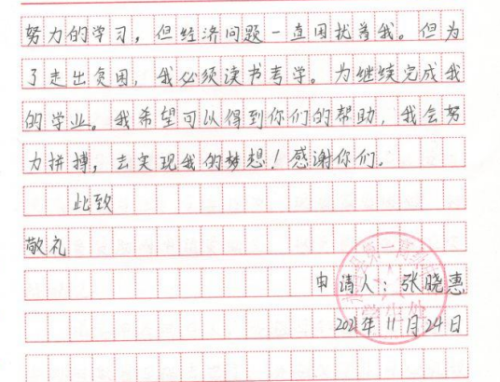 努力的学习，但经济问题一直困扰着我。但为
了走出贫困，我必须读书考学。为继续完成我
的学业。我希望可以得到你们的帮助，我会努
力拼搏，去实现我的梦想！感谢你们。
此致
敬礼
第一高级
申请人：张晓惠
学生处
2021年11月24日